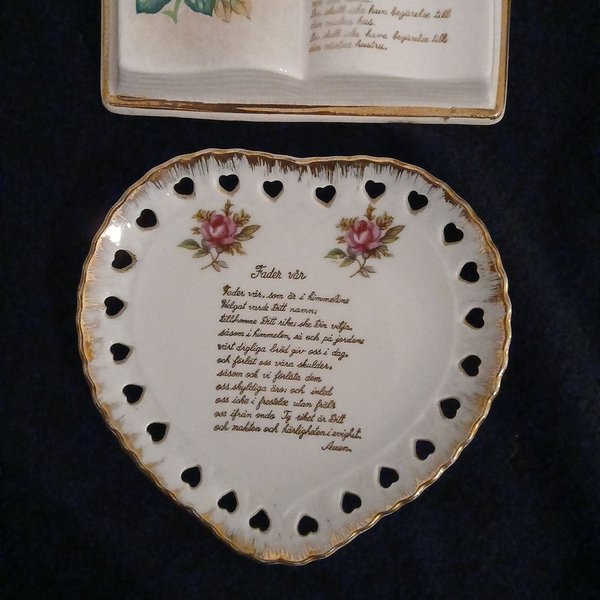 Du skall icke hava begärelse till
din nästas hus.
Du skall icke hava begärelse till
din nästas hustru.
Fader vår
Fader vår, som är i himmelen:
Helgat varde Ditt namn;
tillkomme Ditt rike; ske Din vilja,
såsom i himmelen, så och på jorden;
vårt dagliga bröd giv oss i dag,
och förlåt oss våra skulder,
såsom och vi förlåta dem
oss skyldiga äro; och inled
oss icke i frestelse utan fräls
oss ifrån ondo Ty riket är Ditt
och makten och härligheten i evighet.
Amen.